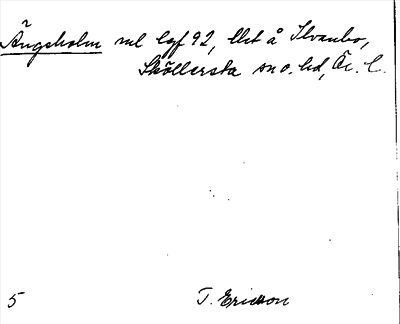 Ängsholm ml lgf 92, llet å Ilvanbo,
Sköllersta sn o. hd, Ör. l.
5 T. Ericson